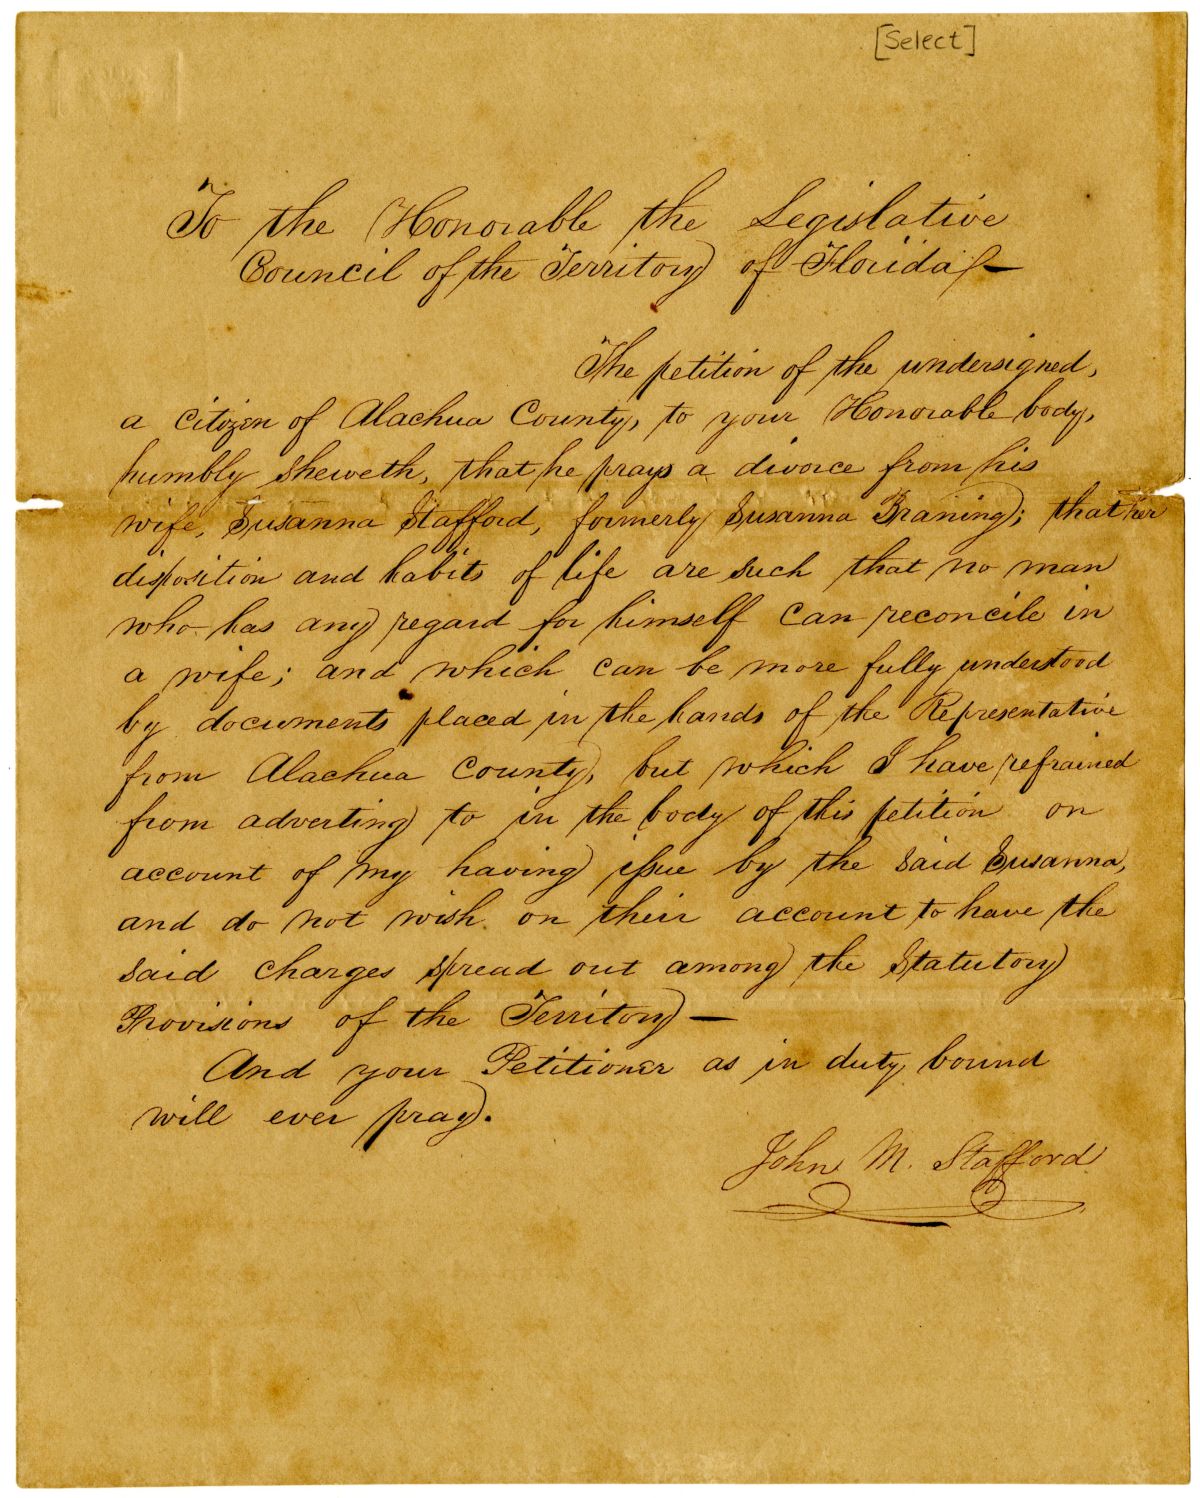 [Select]
To the Honorable the Legislative
Council of the Territory of Florida,—
The petition of the undersigned,
a citizen of Alachua County, to your Honorable body,
humbly sheweth, that he prays a divorce from his
wife, Susanna Stafford, formerly Susanna Braning; that her
disposition and habits of life are such that no man
who has any regard for himself can reconcile in
a wife; and which can be more fully understood
by documents placed in the hands of the Representative
from Alachua County, but which I have refrained
from adverting to in the body of this petition on
account of my having issue by the said Susanna,
and do not wish on their account to have the
said charges spread out among the Statutory
Provisions of the Territory—
And your Petitioner as in duty bound
will ever pray.
John M. Stafford